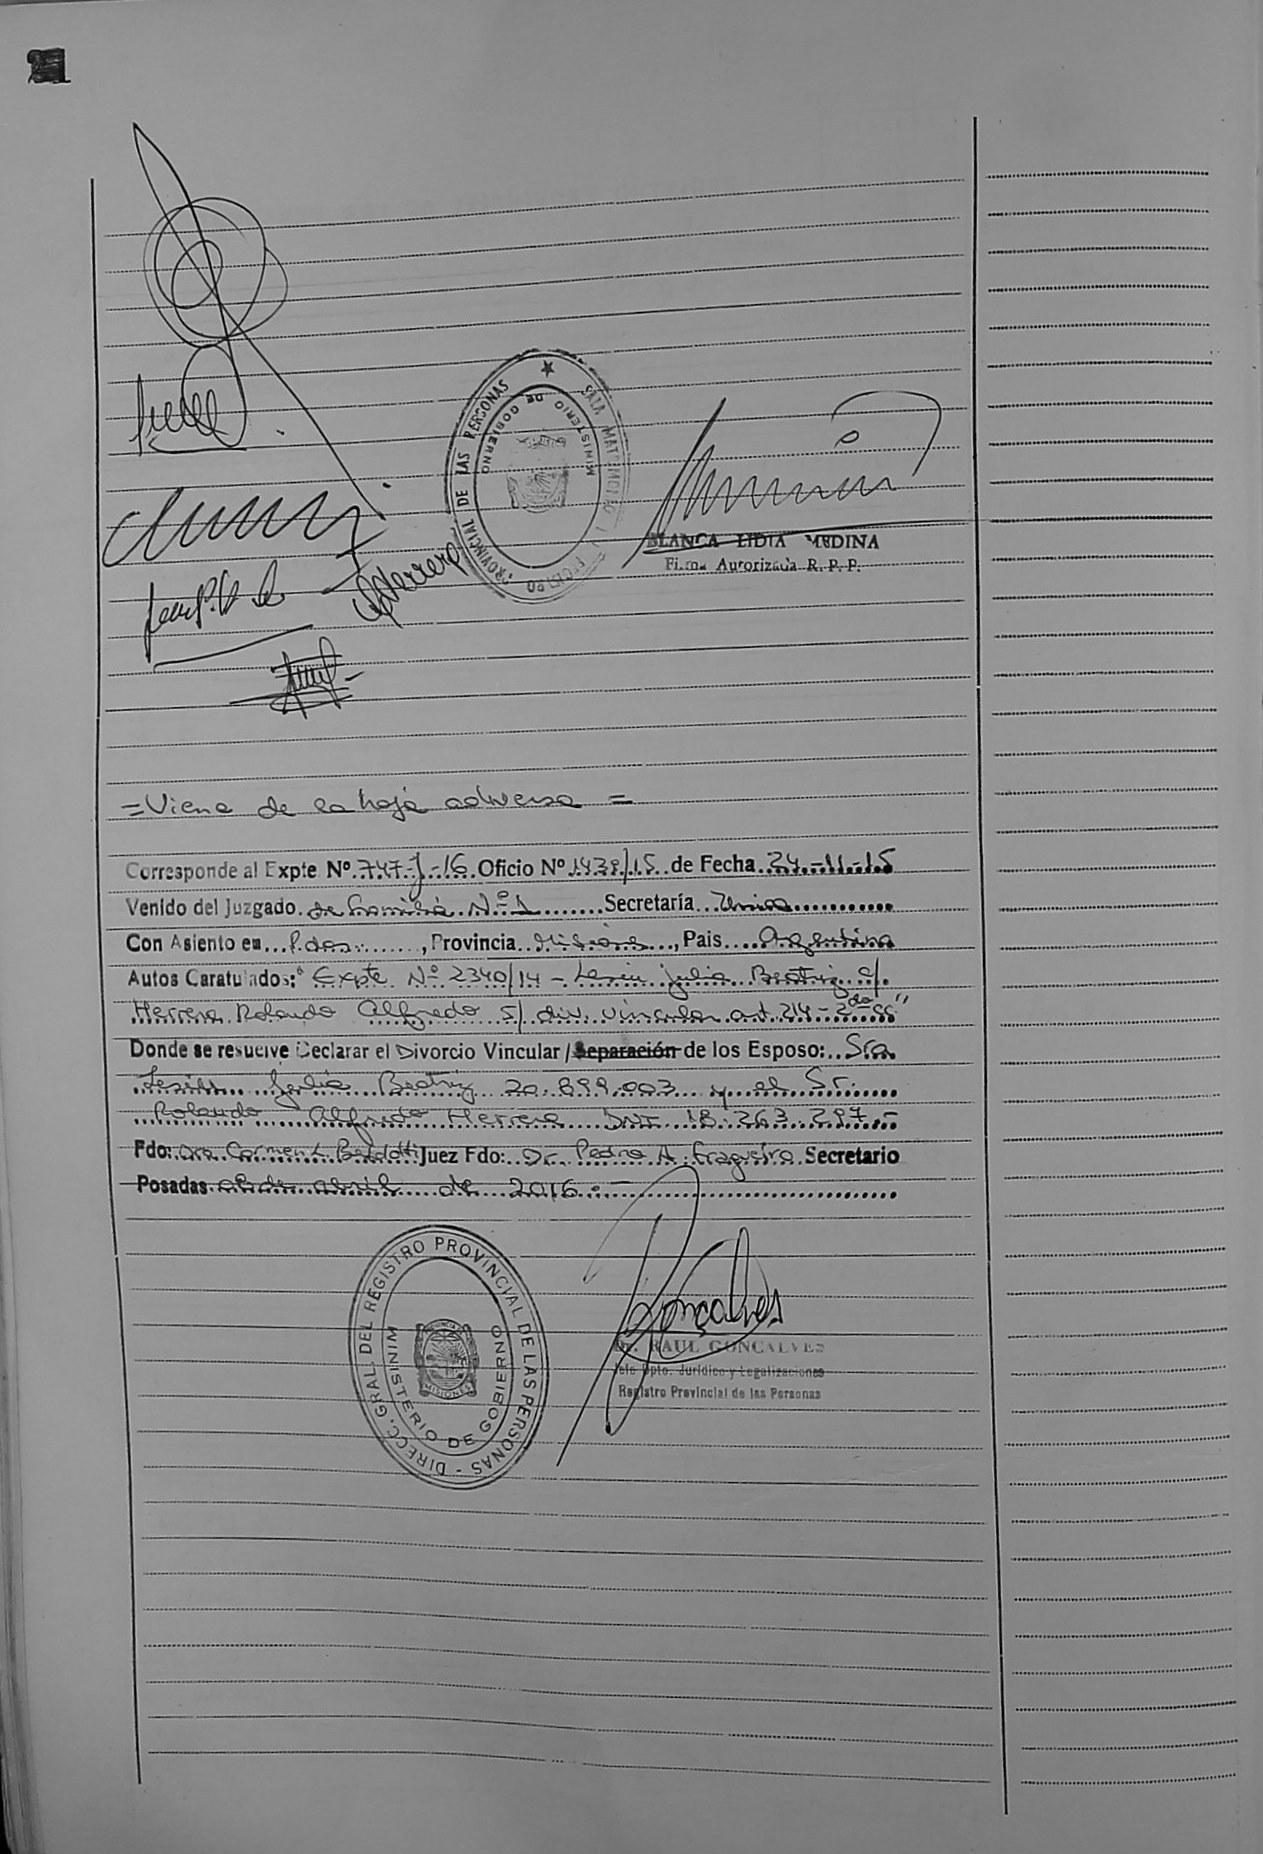 Herrera
REGISTRO PROVINCIAL DE LAS PERSONAS ★ SALA MATRIMONIO
MINISTERIO DE GOBIERNO
BLANCA LIDIA MEDINA
Firma Autorizada R. P. P.
=Viene de la hoja adversa=
Corresponde al Expte Nº 747-J-16 Oficio Nº 1439/15 de Fecha 24-11-15
Venido del Juzgado de Familia Nº 1 Secretaría Unica
Con Asiento en Pdas , Provincia Misiones , Pais Argentina
Autos Caratulados: "Expte Nº 2340/14 - Julia Beatriz c/
Herrera Rolando Alfredo s/ div. vincular art. 214 - 2do
Donde se resuelve Declarar el Divorcio Vincular / Separación de los Esposo: Sra
Julia Beatriz 20.899.003 y el Sr.
Rolando Alfredo Herrera DNI 18.263.297.-
Fdo: Dra Carmen L. Juez Fdo: Dr. Pedro A. Fragueiro Secretario
Posadas abril de 2016.-
DIRECC. GRAL. DEL REGISTRO PROVINCIAL DE LAS PERSONAS -
MINISTERIO DE GOBIERNO
MISIONES
Goncalves
Dr. RAUL GONCALVES
Jefe Dpto. Jurídico y Legalizaciones
Registro Provincial de las Personas